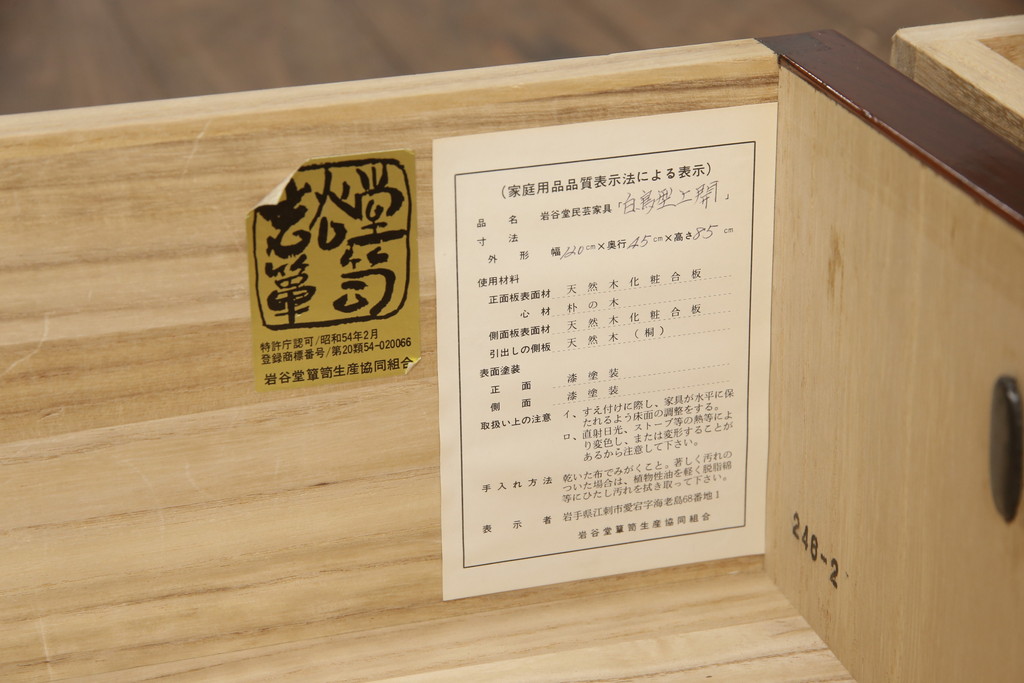 岩谷堂簞笥
特許庁認可/昭和54年2月
登録商標番号/第20類54-020066
岩谷堂簞笥生産協同組合
(家庭用品品質表示法による表示)
品名 岩谷堂民芸家具「白鳥型上開」
寸法
外形 幅120cm×奥行45cm×高さ85cm
使用材料
正面板表面材 天然木化粧合板
心材 朴の木
側面板表面材 天然木化粧合板
引出しの側板 天然木(桐)
表面塗装
正面 漆塗装
側面 漆塗装
取扱い上の注意 イ、すえ付けに際し、家具が水平に保
たれるよう床面の調整をする。
ロ、直射日光、ストーブ等の熱等によ
り変色し、または変形することが
あるから注意して下さい。
手入れ方法 乾いた布でみがくこと。著しく汚れの
ついた場合は、植物性油を軽く脱脂綿
等にひたし汚れを拭き取って下さい。
表示者 岩手県江刺市愛宕字海老島68番地1
岩谷堂簞笥生産協同組合
248-2